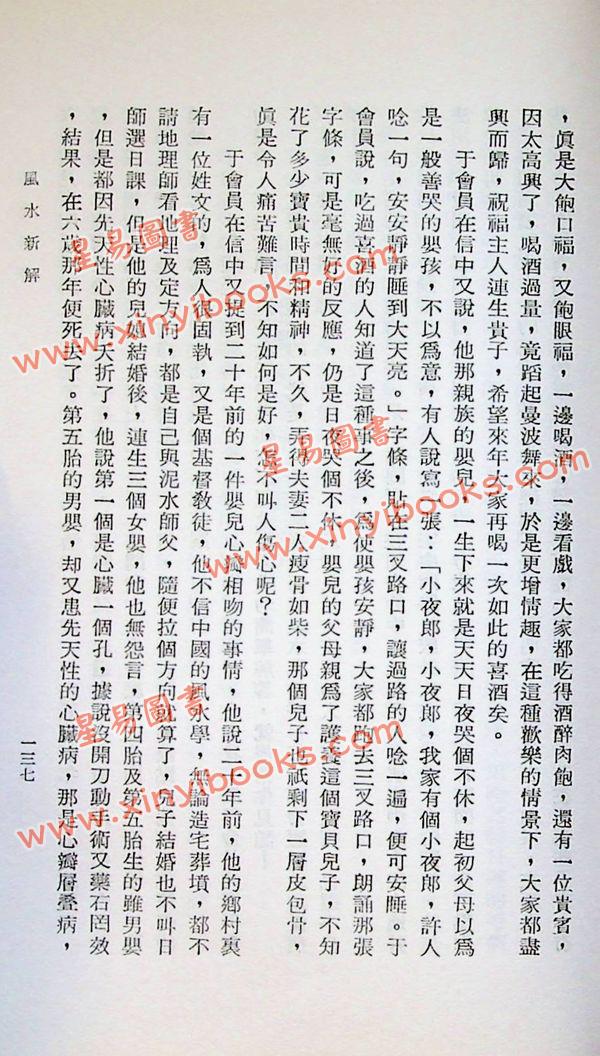 ，眞是大飽口福，又飽眼福，一邊喝酒，一邊看戲，大家都吃得酒醉肉飽，還有一位貴賓，
因太高興了，喝酒過量，竟蹈起曼波舞來，於是更增情趣，在這種歡樂的情景下，大家都盡
興而歸，祝福主人連生貴子，希望來年大家再喝一次如此的喜酒矣。
于會員在信中又說，他那親族的嬰兒，一生下來就是天天日夜哭個不休，起初父母以爲
是一般善哭的嬰孩，不以爲意，有人說寫一張：「小夜郎，小夜郎，我家有個小夜郎，許人
唸一句，安安靜靜睡到大天亮。」字條，貼在三叉路口，讓過路的人唸一遍，便可安睡。于
會員說，吃過喜酒的人知道了這種事之後，爲使嬰孩安靜，大家都跑去三叉路口，朗誦那張
字條，可是毫無好的反應，仍是日夜哭個不休，嬰兒的父母親爲了護養這個寶貝兒子，不知
花了多少寶貴時間和精神，不久，弄得夫妻二人瘦骨如柴，那個兒子也祇剩下一層皮包骨，
眞是令人痛苦難言，不知如何是好，怎不叫人傷心呢？
于會員在信中又提到二十年前的一件嬰兒心瓣相吻的事情，他說二十年前，他的鄉村裏
有一位姓文的，爲人很固執，又是個基督敎徒，他不信中國的風水學，無論造宅葬墳，都不
請地理師看地理及定方向，都是自己與泥水師父，隨便拉個方向就算了，兒子結婚也不叫日
師選日課，但是他的兒媳結婚後，連生三個女嬰，他也無怨言，第四胎及第五胎生的雖男嬰
，但是都因先天性心臟病夭折了，他說第一個是心臟一個孔，據說沒開刀動手術又藥石罔效
，結果，在六歲那年便死去了。第五胎的男嬰，却又患先天性的心臟病，那是心瓣層疊病，
風水新解
一三七
星易圖書
www.xinyibooks.com
星易圖書
www.xinyibooks.com
星易圖書
www.xinyibooks.com
星易圖書
www.xinyibooks.com